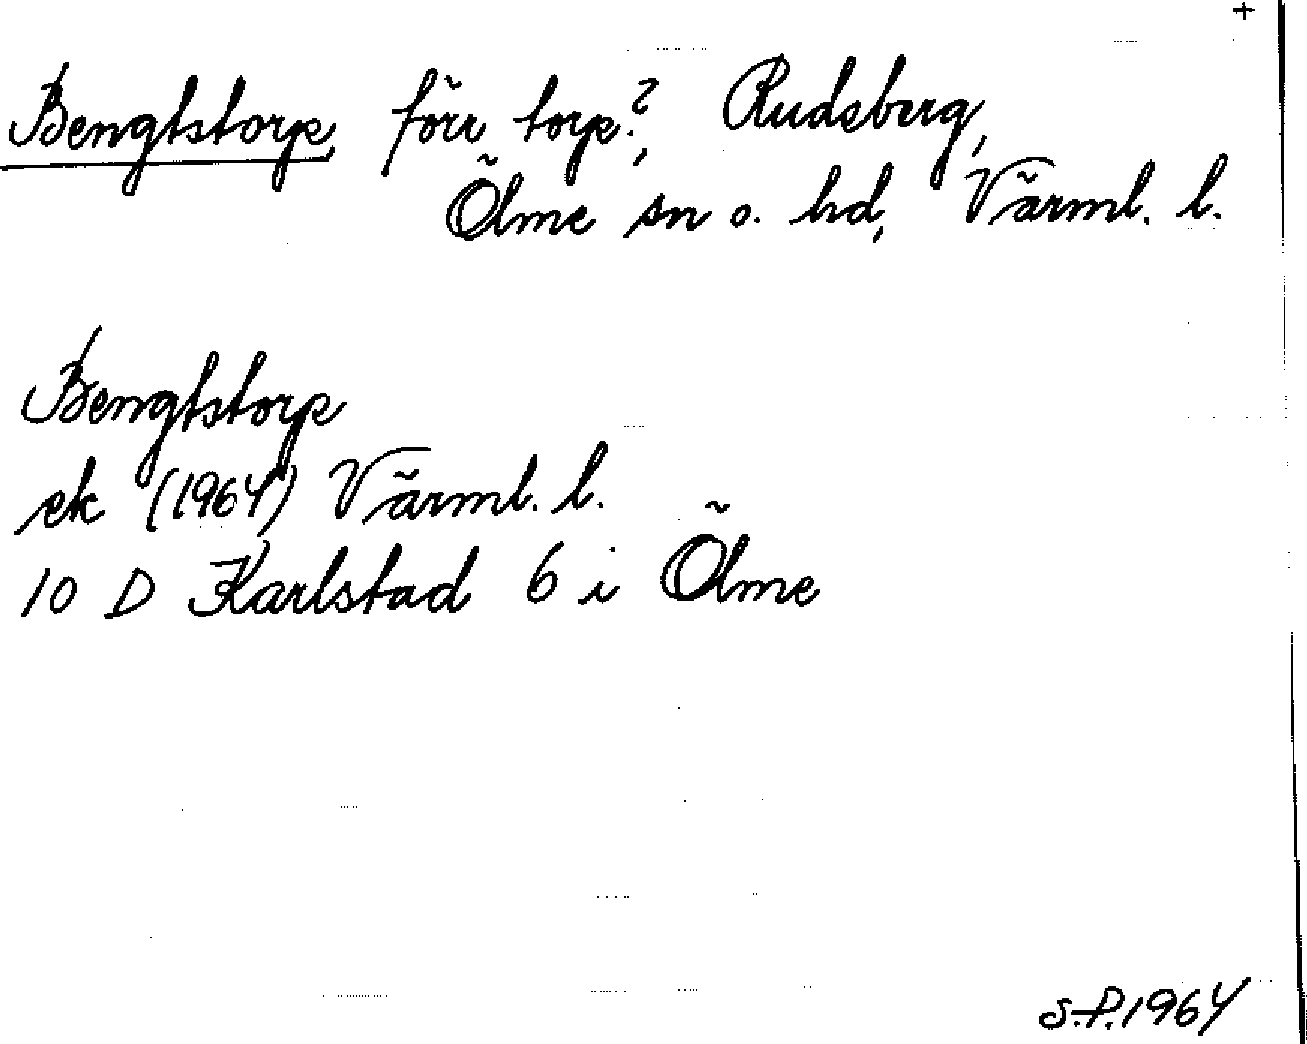 +
Bengtstorp, förr torp?, Rudsberg,
Ölme sn o. hd, Värml. l.
Bengtstorp
ek (1964) Värml. l.
10 D Karlstad 6 i Ölme
S.P. 1964